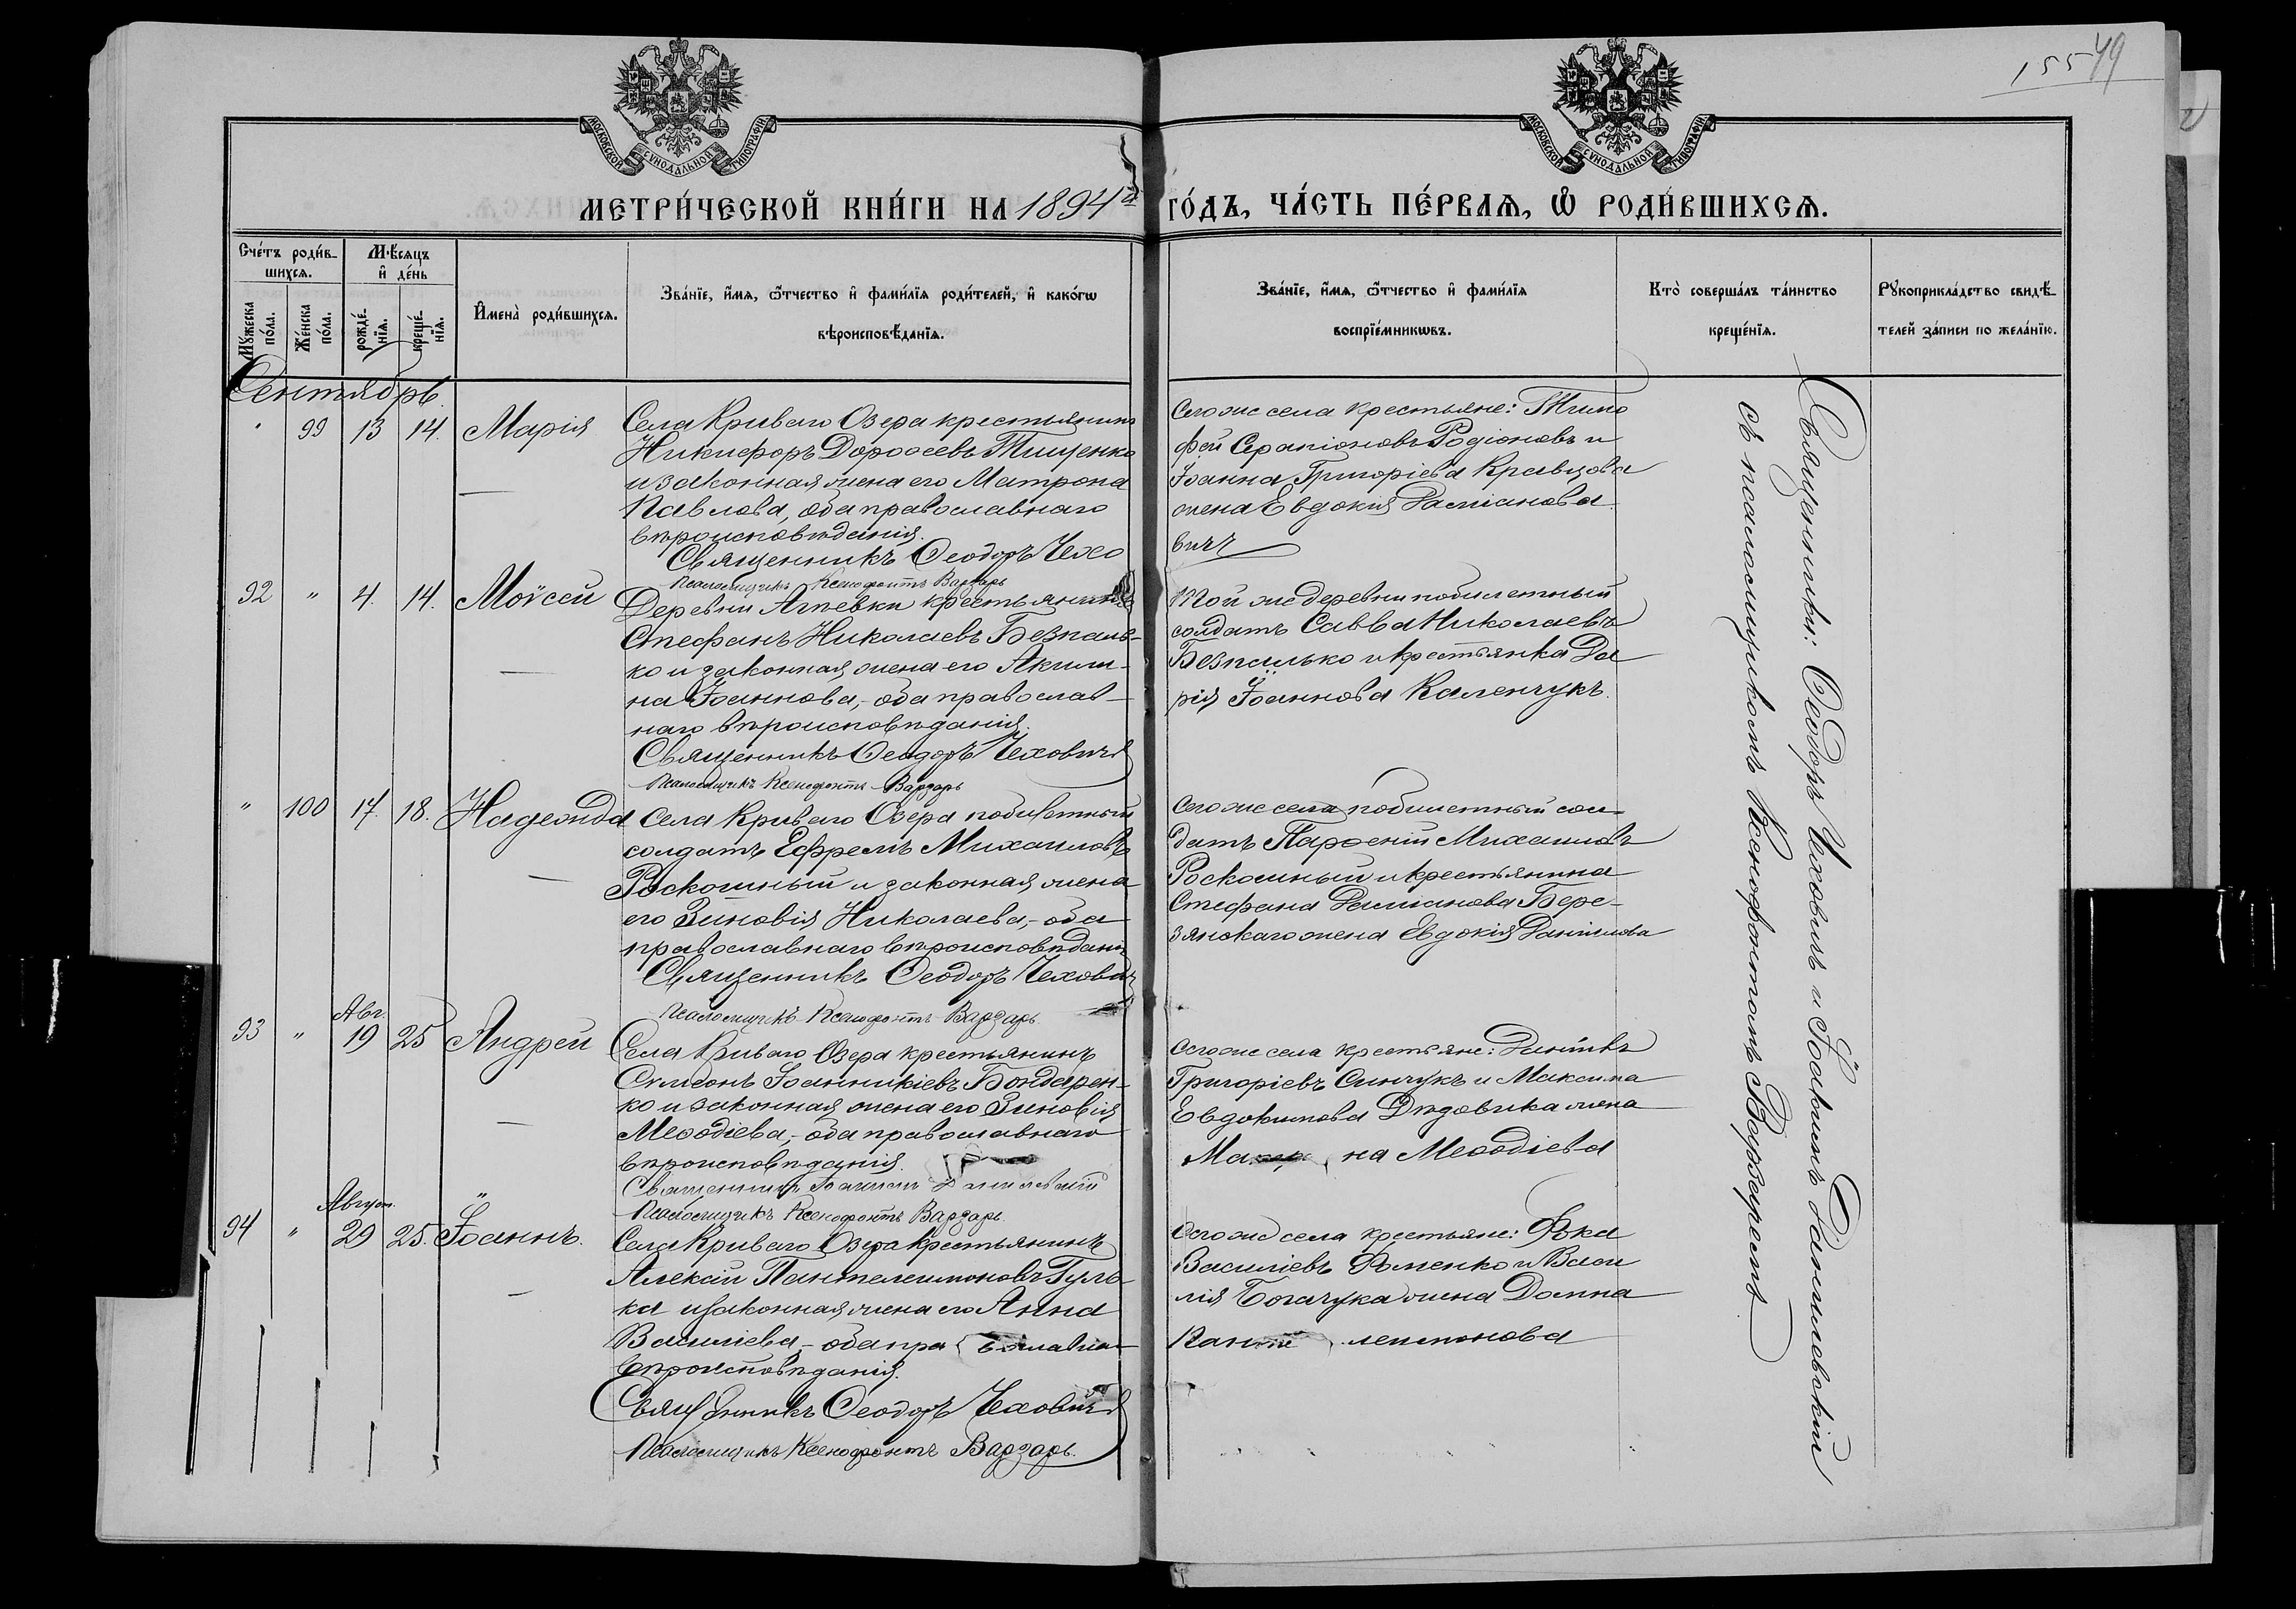 155 49
МОСКОВСКОЙ СУНОДАЛЬНОЙ ТИПОГРАФІИ
МОСКОВСКОЙ СУНОДАЛЬНОЙ ТИПОГРАФІИ
МЕТРИ́ЧЕСКОЙ КНИ́ГИ НА 1894й ГО́ДЪ, ЧА́СТЬ ПЕ́РВАѦ, Ѡ҆ РОДИ́ВШИХСѦ.
Сче́тъ роди́в-
шихсѧ.
Мꙋ́жеска
по́ла.
Же́нска
по́ла.
Мѣ́сѧцъ
и҆ де́нь
рожде́-
нїѧ.
креще́-
нїѧ.
И҆мена̀ роди́вшихсѧ.
Зва́нїе, и҆́мѧ, ѻ҆́тчество и҆ фами́лїѧ роди́телей, и҆ како́гѡ
вѣроисповѣ́данїѧ.
Зва́нїе, и҆́мѧ, ѻ҆́тчество и҆ фами́лїѧ
воспрїе́мникѡвъ.
Кто̀ соверша́лъ та́инство
креще́нїѧ.
Рꙋкоприкла́дство свидѣ́-
телей за́писи по жела́нїю.
Сентябрь
" 99 13 14. Марія
Села Криваго Озера крестьянинъ
Никифоръ Дороѳеевъ Тищенко
и законная жена его Матрона
Павлова, оба православнаго
вѣроисповѣданія.
Священникъ Ѳеодоръ Чехо
вичъ
Псаломщикъ Ксенофонтъ Варзарь
Сего же села крестьяне: Тимо
фей Серапіоновъ Родіоновъ и
Іоанна Григоріева Кравцова
жена Евдокія Даміанова
92 " 4. 14. Моѵсей
Деревни Агѣевки крестьянинъ
Стефанъ Николаевъ Безпаль-
ко и законная жена его Акили-
на Іоаннова,- оба православ-
наго вѣроисповѣданія.
Священникъ Ѳеодоръ Чеховичъ
Псаломщикъ Ксенофонтъ Варзарь
Той же деревни побилетный
солдатъ Савва Николаевъ
Безпалько и крестьянка Да
рія Іоаннова Каленчукъ.
" 100 17. 18. Надежда
Села Криваго Озера побилетный
солдатъ Ефремъ Михаиловъ
Роскошный и законная жена
его Зиновія Николаева,- оба
православнаго вѣроисповѣдані
Священникъ Ѳеодоръ Чехович
Псаломщикъ Ксенофонтъ Варзарь
Сего же села побилетный сол-
датъ Парѳеній Михаиловъ
Роскошный и крестьянина
Стефана Даміанова Бере-
зянскаго жена Евдокія Даніилова
Авг.
93 " 19 25 Андрей
Села Криваго Озера крестьянинъ
Сѵмеонъ Іоанникіевъ Бондарен-
ко и законная жена его Зиновія
Меѳодіева,- оба православнаго
вѣроисповѣданія.
Священникъ Іоакимъ Данилевскій
Псаломщикъ Ксенофонтъ Варзарь
Сего же села крестьяне: Даніилъ
Григоріевъ Синчукъ и Максима
Евдокимова Дѣдовика жена
на Меѳодіева
Август.
94 " 29 25. Іоаннъ.
Села Криваго Озера крестьянинъ
Алексій Пантелеимоновъ Гуль-
ка и законная жена его Анна
Василіева,- оба православна
вѣроисповѣданія.
Священникъ Ѳеодоръ Чеховичъ
Псаломщикъ Ксенофонтъ Варзарь.
Сего же села крестьяне: Фока
Василіевъ Фоменко и Васи
лія Богачука жена Домна
Пантелеимонова
Священники: Ѳеодоръ Чеховичъ и Іоакимъ Данилевскій
съ псаломщикомъ Ксенофонтомъ Варзаремъ